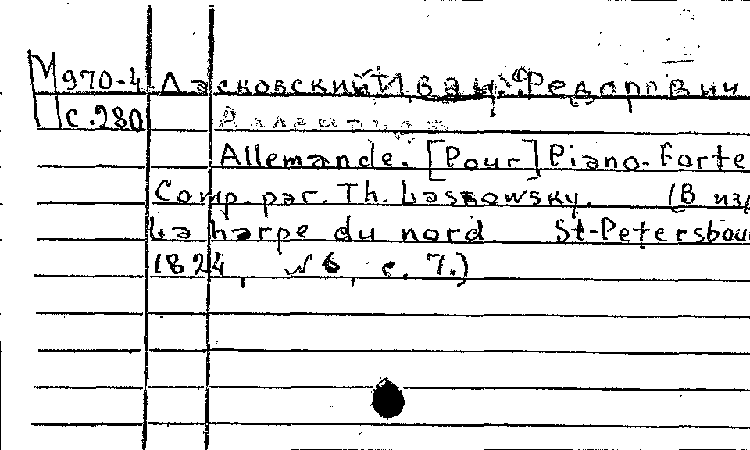 М970-4 Ласковский Иван Федорович
с.280
Allemande. [Pour] Piano-Forte
Comp. par. Th. Laskowsky. (В из
La harpe du nord St-Petersbou
1824, № 6, с. 7.)